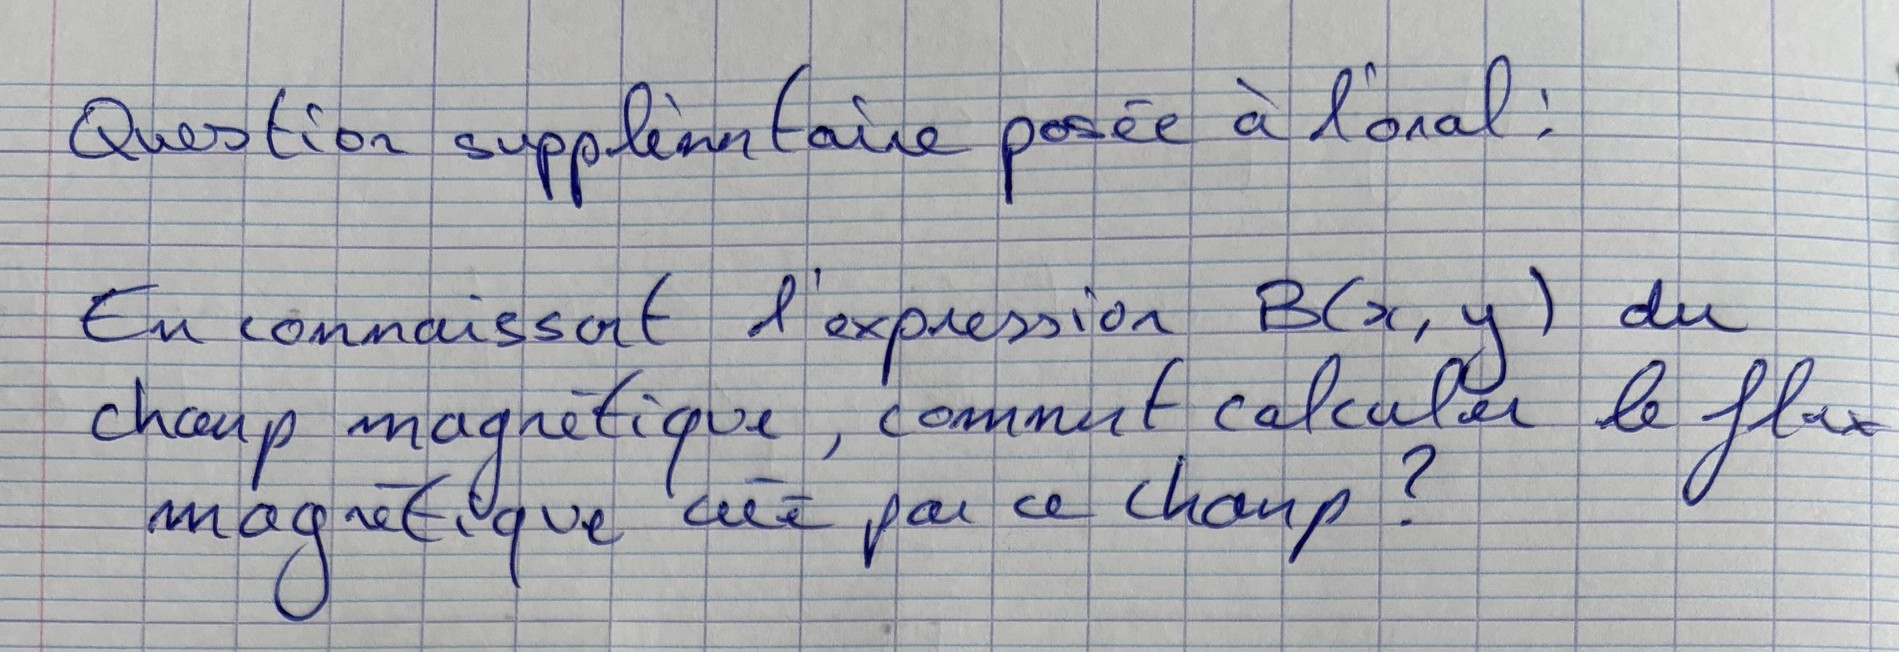 Question supplémentaire posée à l'oral :
En connaissant l'expression B(x, y) du
champ magnétique, comment calculer le flux
magnétique créé par ce champ ?